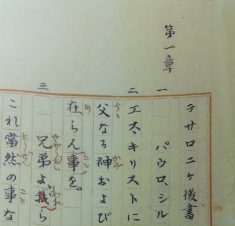 テサロニケ後書
第一章
一 パウロ、シル
二 エス・キリストに
父なる神および
在らん事を。
三 兄弟よ我ら
これ当然の事な